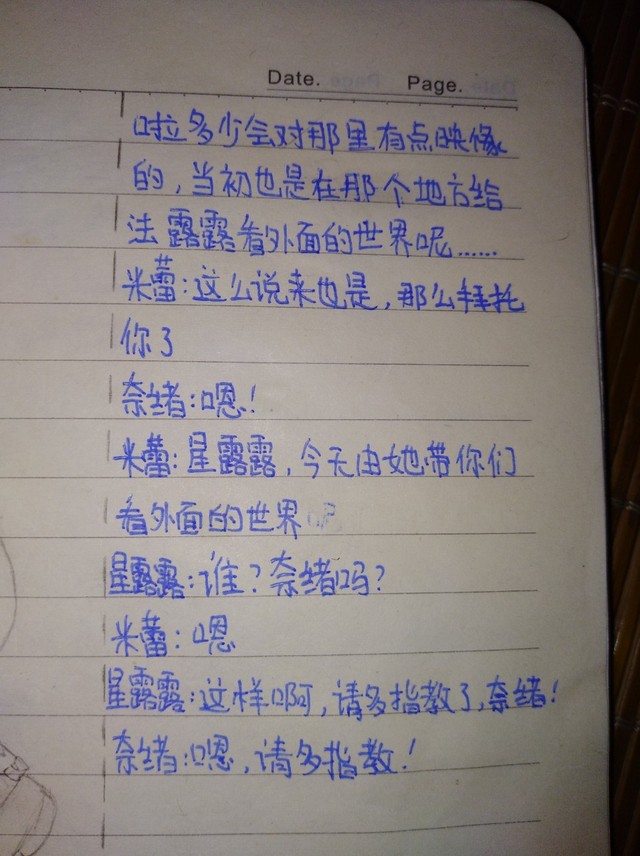 Date. Page.
啦多少会对那里有点映像
的，当初也是在那个地方给
法露露看外面的世界呢……
米蕾：这么说来也是，那么拜托
你了
奈绪：嗯！
米蕾：星露露，今天由她带你们
看外面的世界
星露露：谁？奈绪吗？
米蕾：嗯
星露露：这样啊，请多指教了，奈绪！
奈绪：嗯，请多指教！